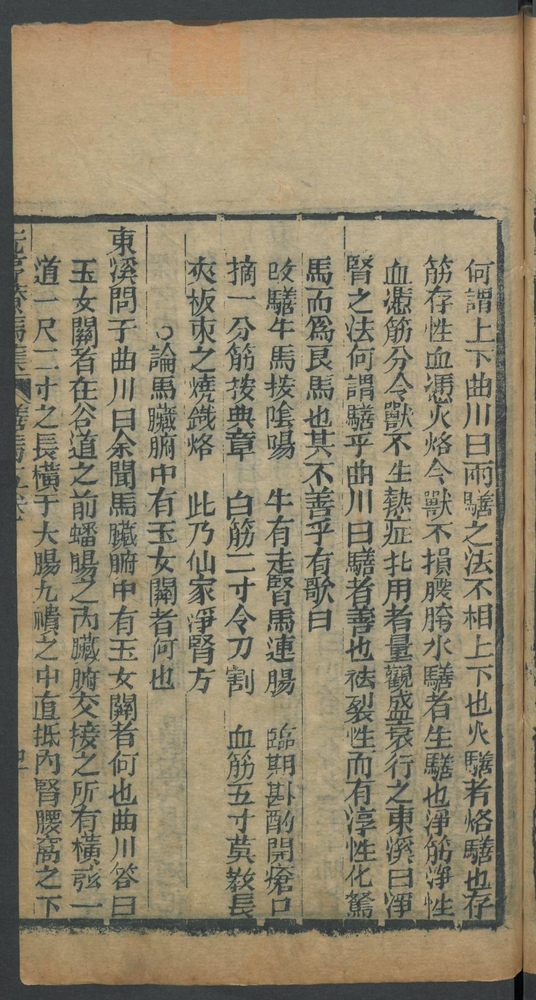 何謂上下曲川曰兩騸之法不相上下也火騸者烙騸也存
筋存性血憑火烙令獸不損腰胯水騸者生騸也淨筋淨性
血憑筋分令獸不生熱症扗用者量觀盛衰行之東溪曰凈
腎之法何謂騸乎曲川曰騸者善也祛裂性而有淳性化駑
馬而爲良馬也其不善乎有歌曰
㕛騸牛馬按陰陽 牛有走腎馬連腸 臨期斟酌開瘡口
摘一分筋按典章 白筋二寸令刀割 血筋五寸莫教長
夾板朿之燒鐡烙 此乃仙家淨腎方
○論馬臟腑中有玉女關者何也
東溪問于曲川曰余聞馬臟腑中有玉女關者何也曲川答曰
玉女關者在谷道之前蟠腸之内臟腑交接之所有橫弦一
道一尺二寸之長橫于大腸九䙡之中直抵内腎腰窩之下